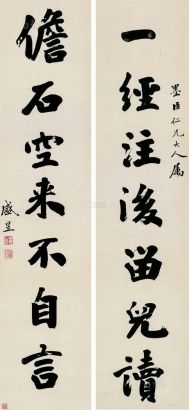 墨臣仁兄大人属
一經注後留兒讀
儋石空来不自言
盛昱